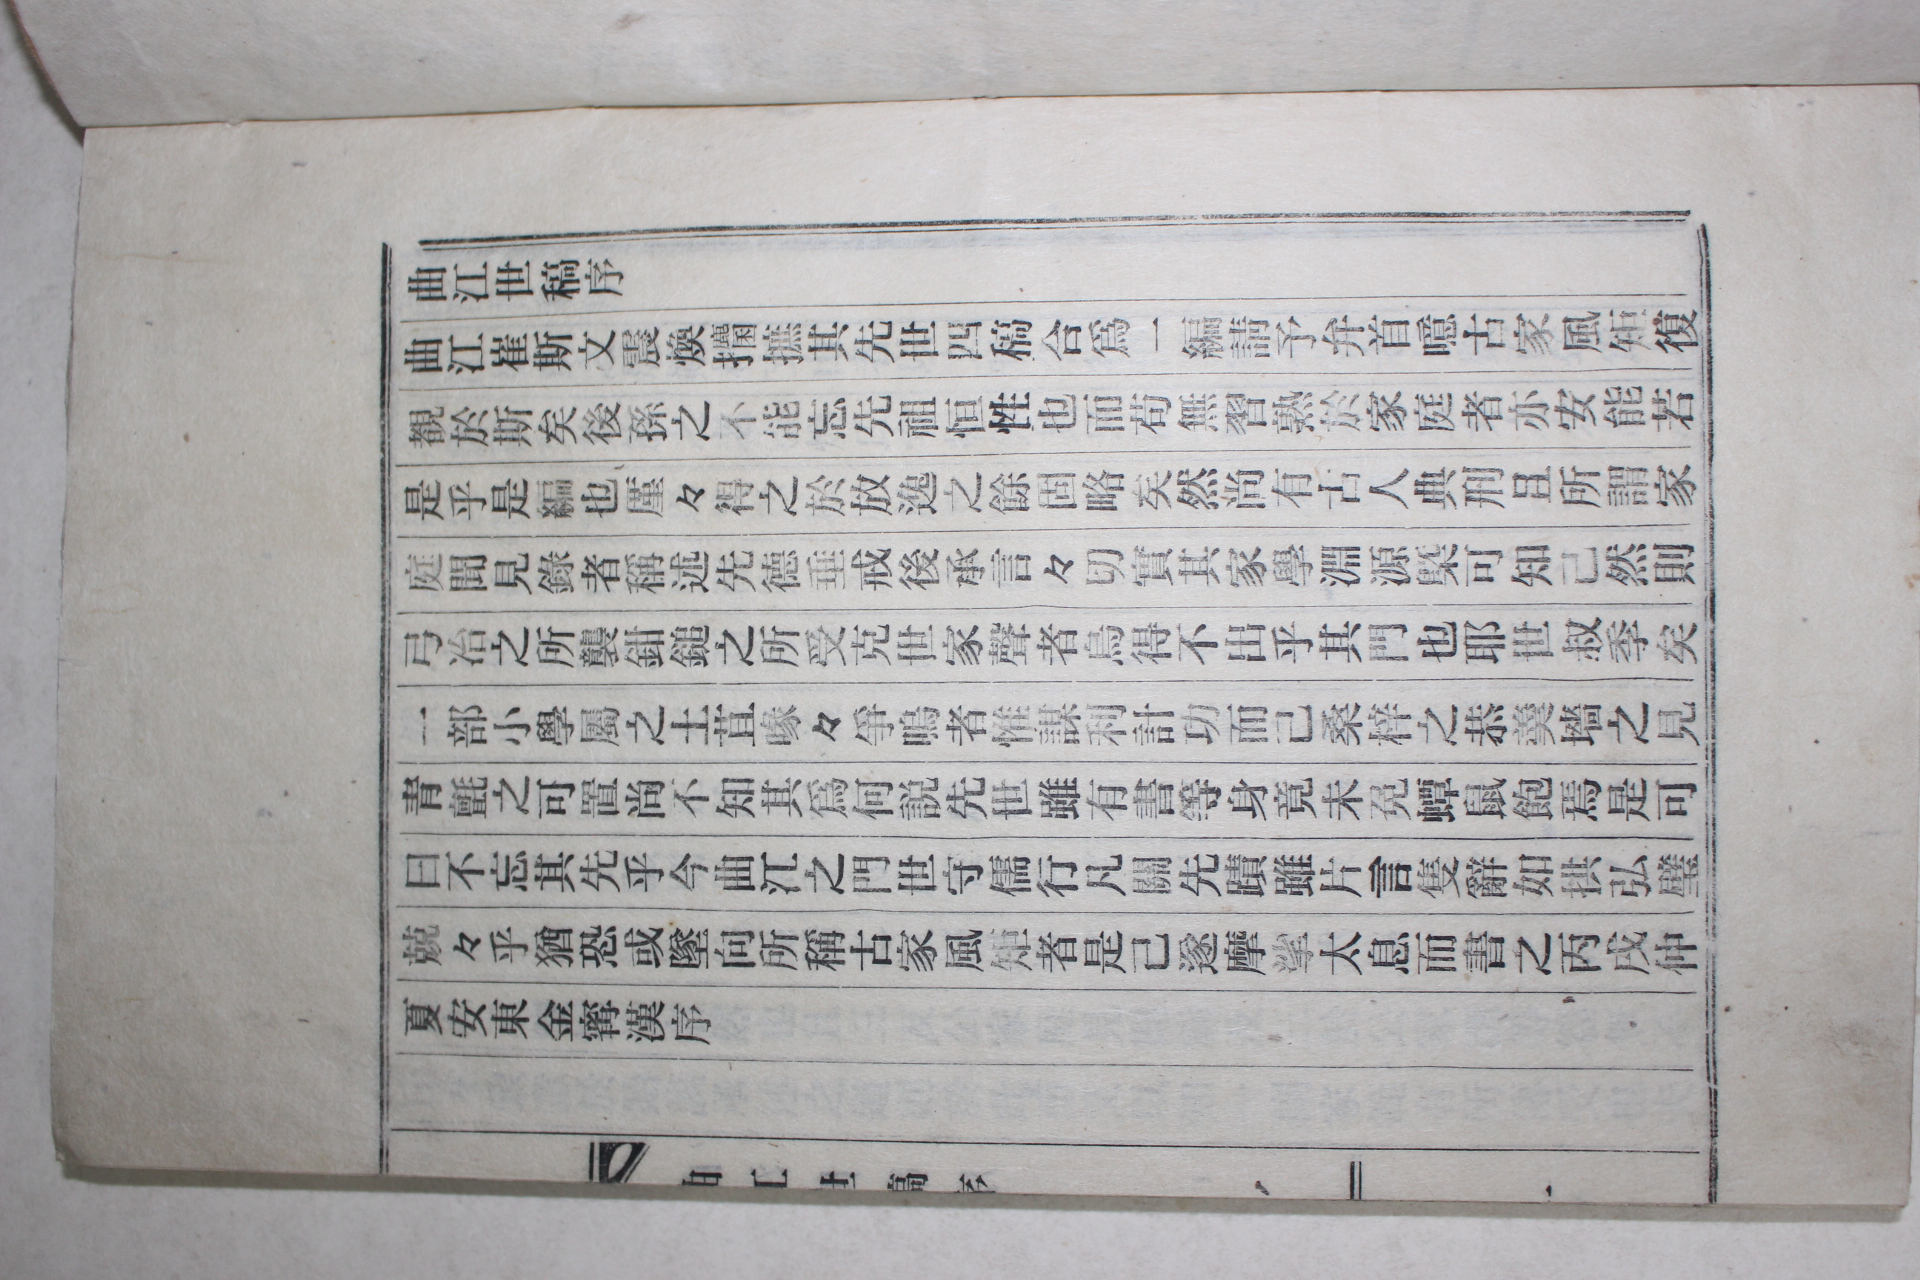 曲江世稿序
曲江崔斯文震煥捃摭其先世四稿合爲一編請予弁首噫古家風矩復
覩於斯矣後孫之不能忘先祖恒性也而苟無習熟於家庭者亦安能若
是乎是編也廑々得之於放逸之餘固略矣然尚有古人典刑且所謂家
庭聞見錄者稱述先德垂戒後承言々切實其家學淵源槩可知己然則
弓冶之所襲鉗鎚之所受克世家聲者烏得不出乎其門也耶世叔季矣
一部小學屬之土苴喙々爭鳴者惟謀利計功而己桑梓之恭羹墻之見
青氈之可置尚不知其爲何説先世雖有書等身竟未免蟫鼠飽焉是可
曰不忘其先乎今曲江之門世守儒行凡關先蹟雖片言隻辭如拱弘璧
兢々乎猶恐或墜向所稱古家風矩者是己遂摩挲太息而書之丙戌仲
夏安東金甯漢序
曲江世稿序
一